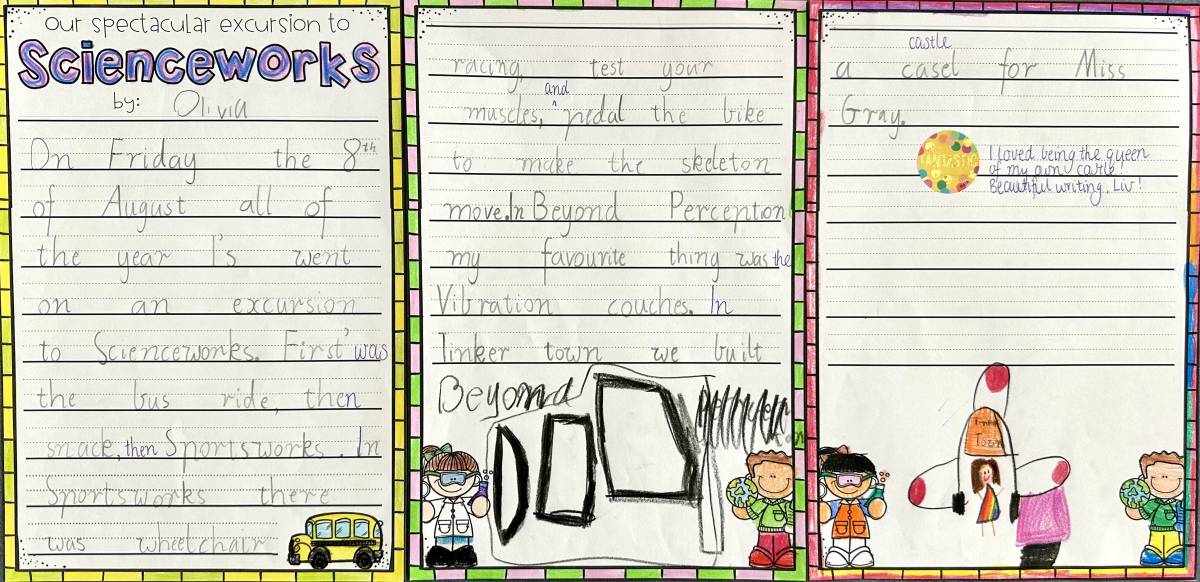 Our spectacular excursion to
Scienceworks
by: Olivia
On Friday the 8th
of August all of
the year 1's went
on an excursion
to Scienceworks. First' was
the bus ride, then
snack, then Sportsworks. In
Sportsworks there
was wheelchair
racing, test your
and
muscles, ^ pedal the bike
to make the skeleton
move. In Beyond Percepton
my favourite thing was the
Vibration couches. In
Tinker town we built
Beyond
castle
a casel for Miss
Gray.
FANTASTIC
I loved being the queen
of my own castle!
Beautiful writing, Liv!
Town